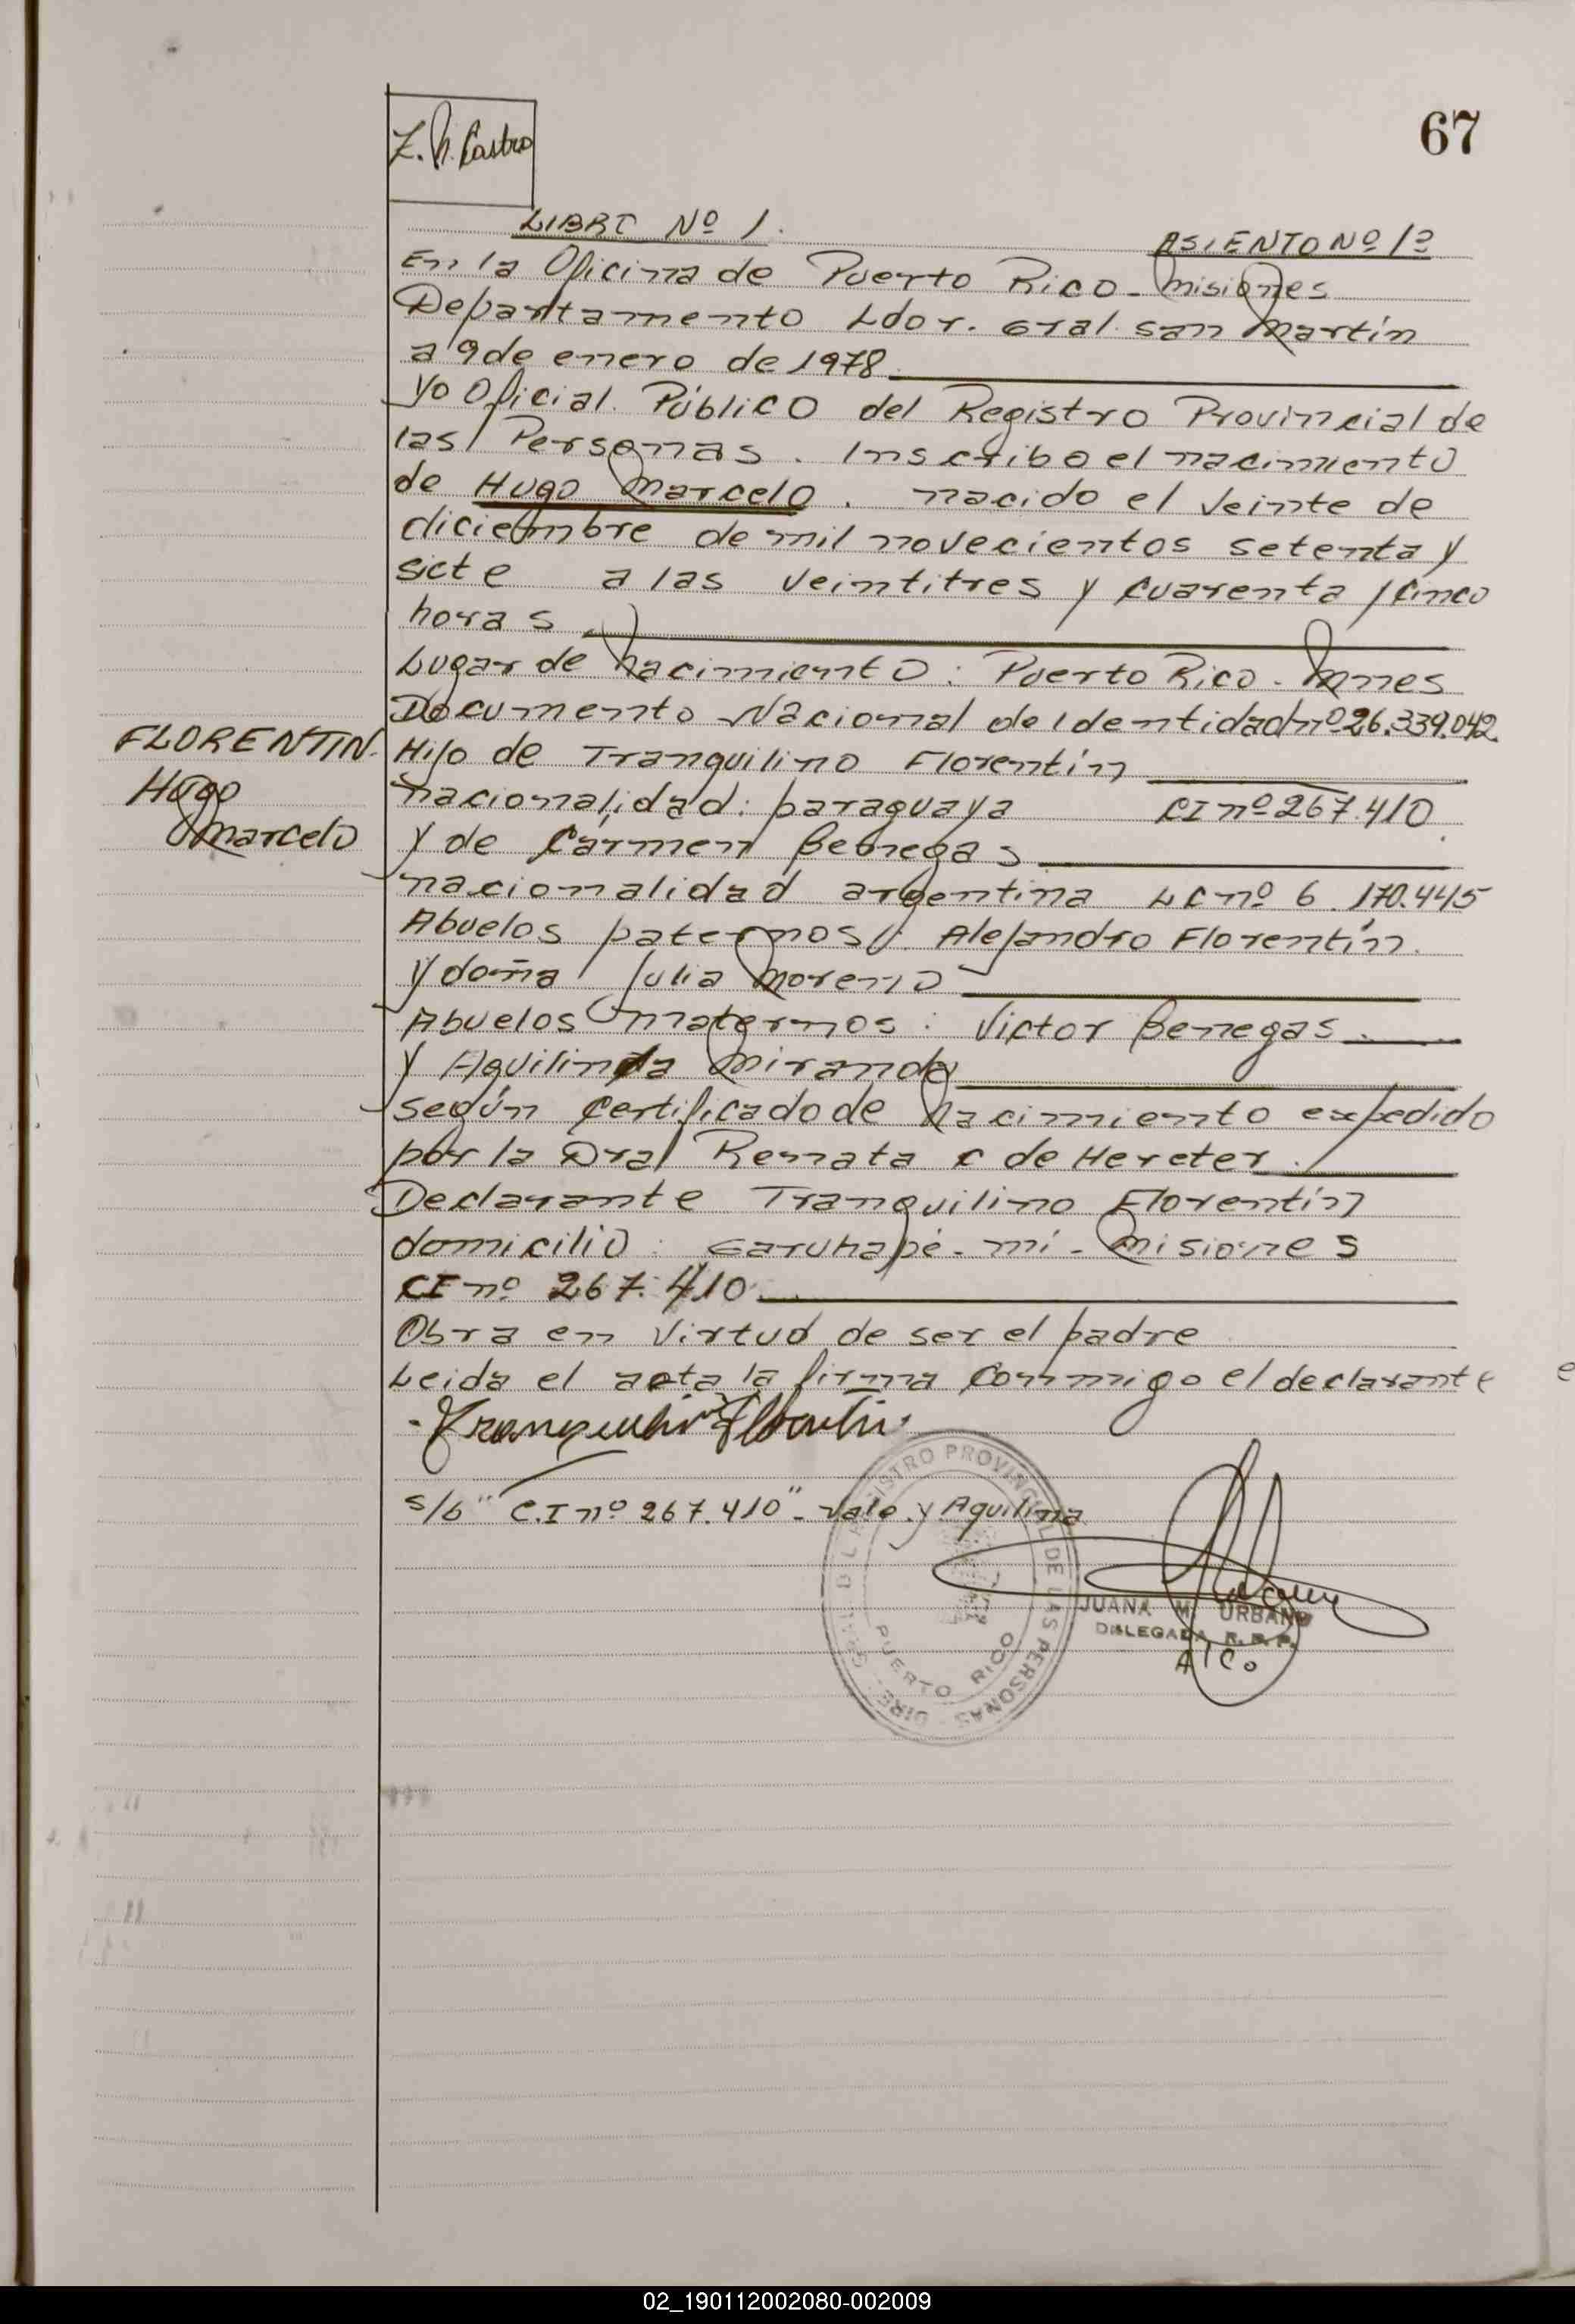 67
Z. N. Castro
LIBRO Nº 1.
ASIENTO Nº 1º
En la Oficina de Puerto Rico - Misiones
Departamento Ldor. Gral. San Martín
a 9 de enero de 1978
Yo Oficial Público del Registro Provincial de
las Personas. Inscribo el nacimiento
de Hugo Marcelo. nacido el veinte de
diciembre de mil novecientos setenta y
siete a las veintitres y cuarenta y cinco
horas
Lugar de Nacimiento: Puerto Rico - Mnes
Documento Nacional de Identidad nº 26.339.042.
FLORENTIN.
Hugo
Marcelo
Hijo de Tranquilino Florentín
nacionalidad: paraguaya CI nº 267.410
y de Carmen Benegas
nacionalidad argentina LC nº 6.170.445
Abuelos paternos: Alejandro Florentín.
y doña Julia Moreno
Abuelos maternos: Victor Benegas.
y Aquilina Miranda
según certificado de Nacimiento expedido
por la Dra Renata C de Hereter.
Declarante Tranquilino Florentín
domicilio: Garuhapé - mí - Misiones
CI nº 267.410
Obra en virtud de ser el padre
Leida el acta la firma conmigo el declarante
Tranquilino Florentin
s/b "C.I nº 267.410" - Vale. y Aquilina
REGISTRO PROVINCIAL DE LAS PERSONAS
PUERTO RICO
JUANA M. URBANO
DELEGADA R.P.P.
02_190112002080-002009